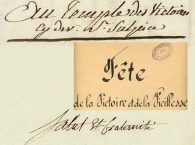 Au Temple des Victoires
cy dev. St Sulpice
Fête
de la Victoire et de la Vieillesse
Salut et fraternité